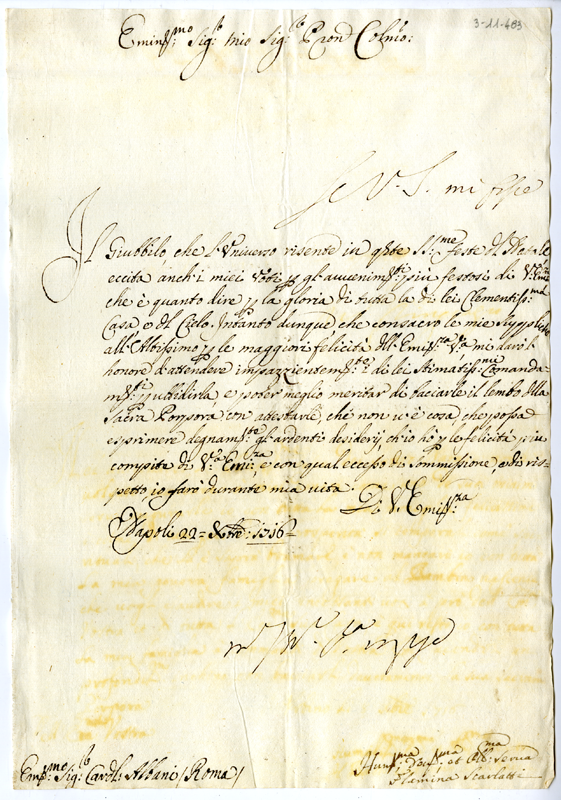 3-11-483
Eminss:mo Sig:r mio Sig:r e Pron Colmo:
Il Giubbilo, che l'Universo risente in q:ste S:me Feste del Natale
eccita anch'i miei voti p gl'avvenim:ti più festosi di V:ra Emi:za
che è quanto dire p la gloria di tutta la di lei Clementiss:ma
Casa e del Cielo. Intanto dunque, che consacro le mie Suppliche
all'Altissimo p le maggiori felicità dell'Emi:za V:ra mi darò l'
honore d'attendere impazzientem:te i di lei stimatiss:mi Comanda-
m:ti p ubbidirla, e poter meglio meritar di baciarle il lembo della
Sacra Porpora con attestarle, che non v'è cosa, che possa
esprimere degnam:te gl'ardenti desiderij ch'io hò p le felicità più
compite di V:ra Emi:za, e con qual eccesso di Sommissione e di ris-
petto, io sarò durante mia vita.
Di V:ra Emiss:za
Napoli 22= Xbre: 1716=
Emin:mo Sig:r Card:l: Albani / Roma /
Hum:ma Dev:ma et Obl:ma Serva
Flaminia Scarlatti